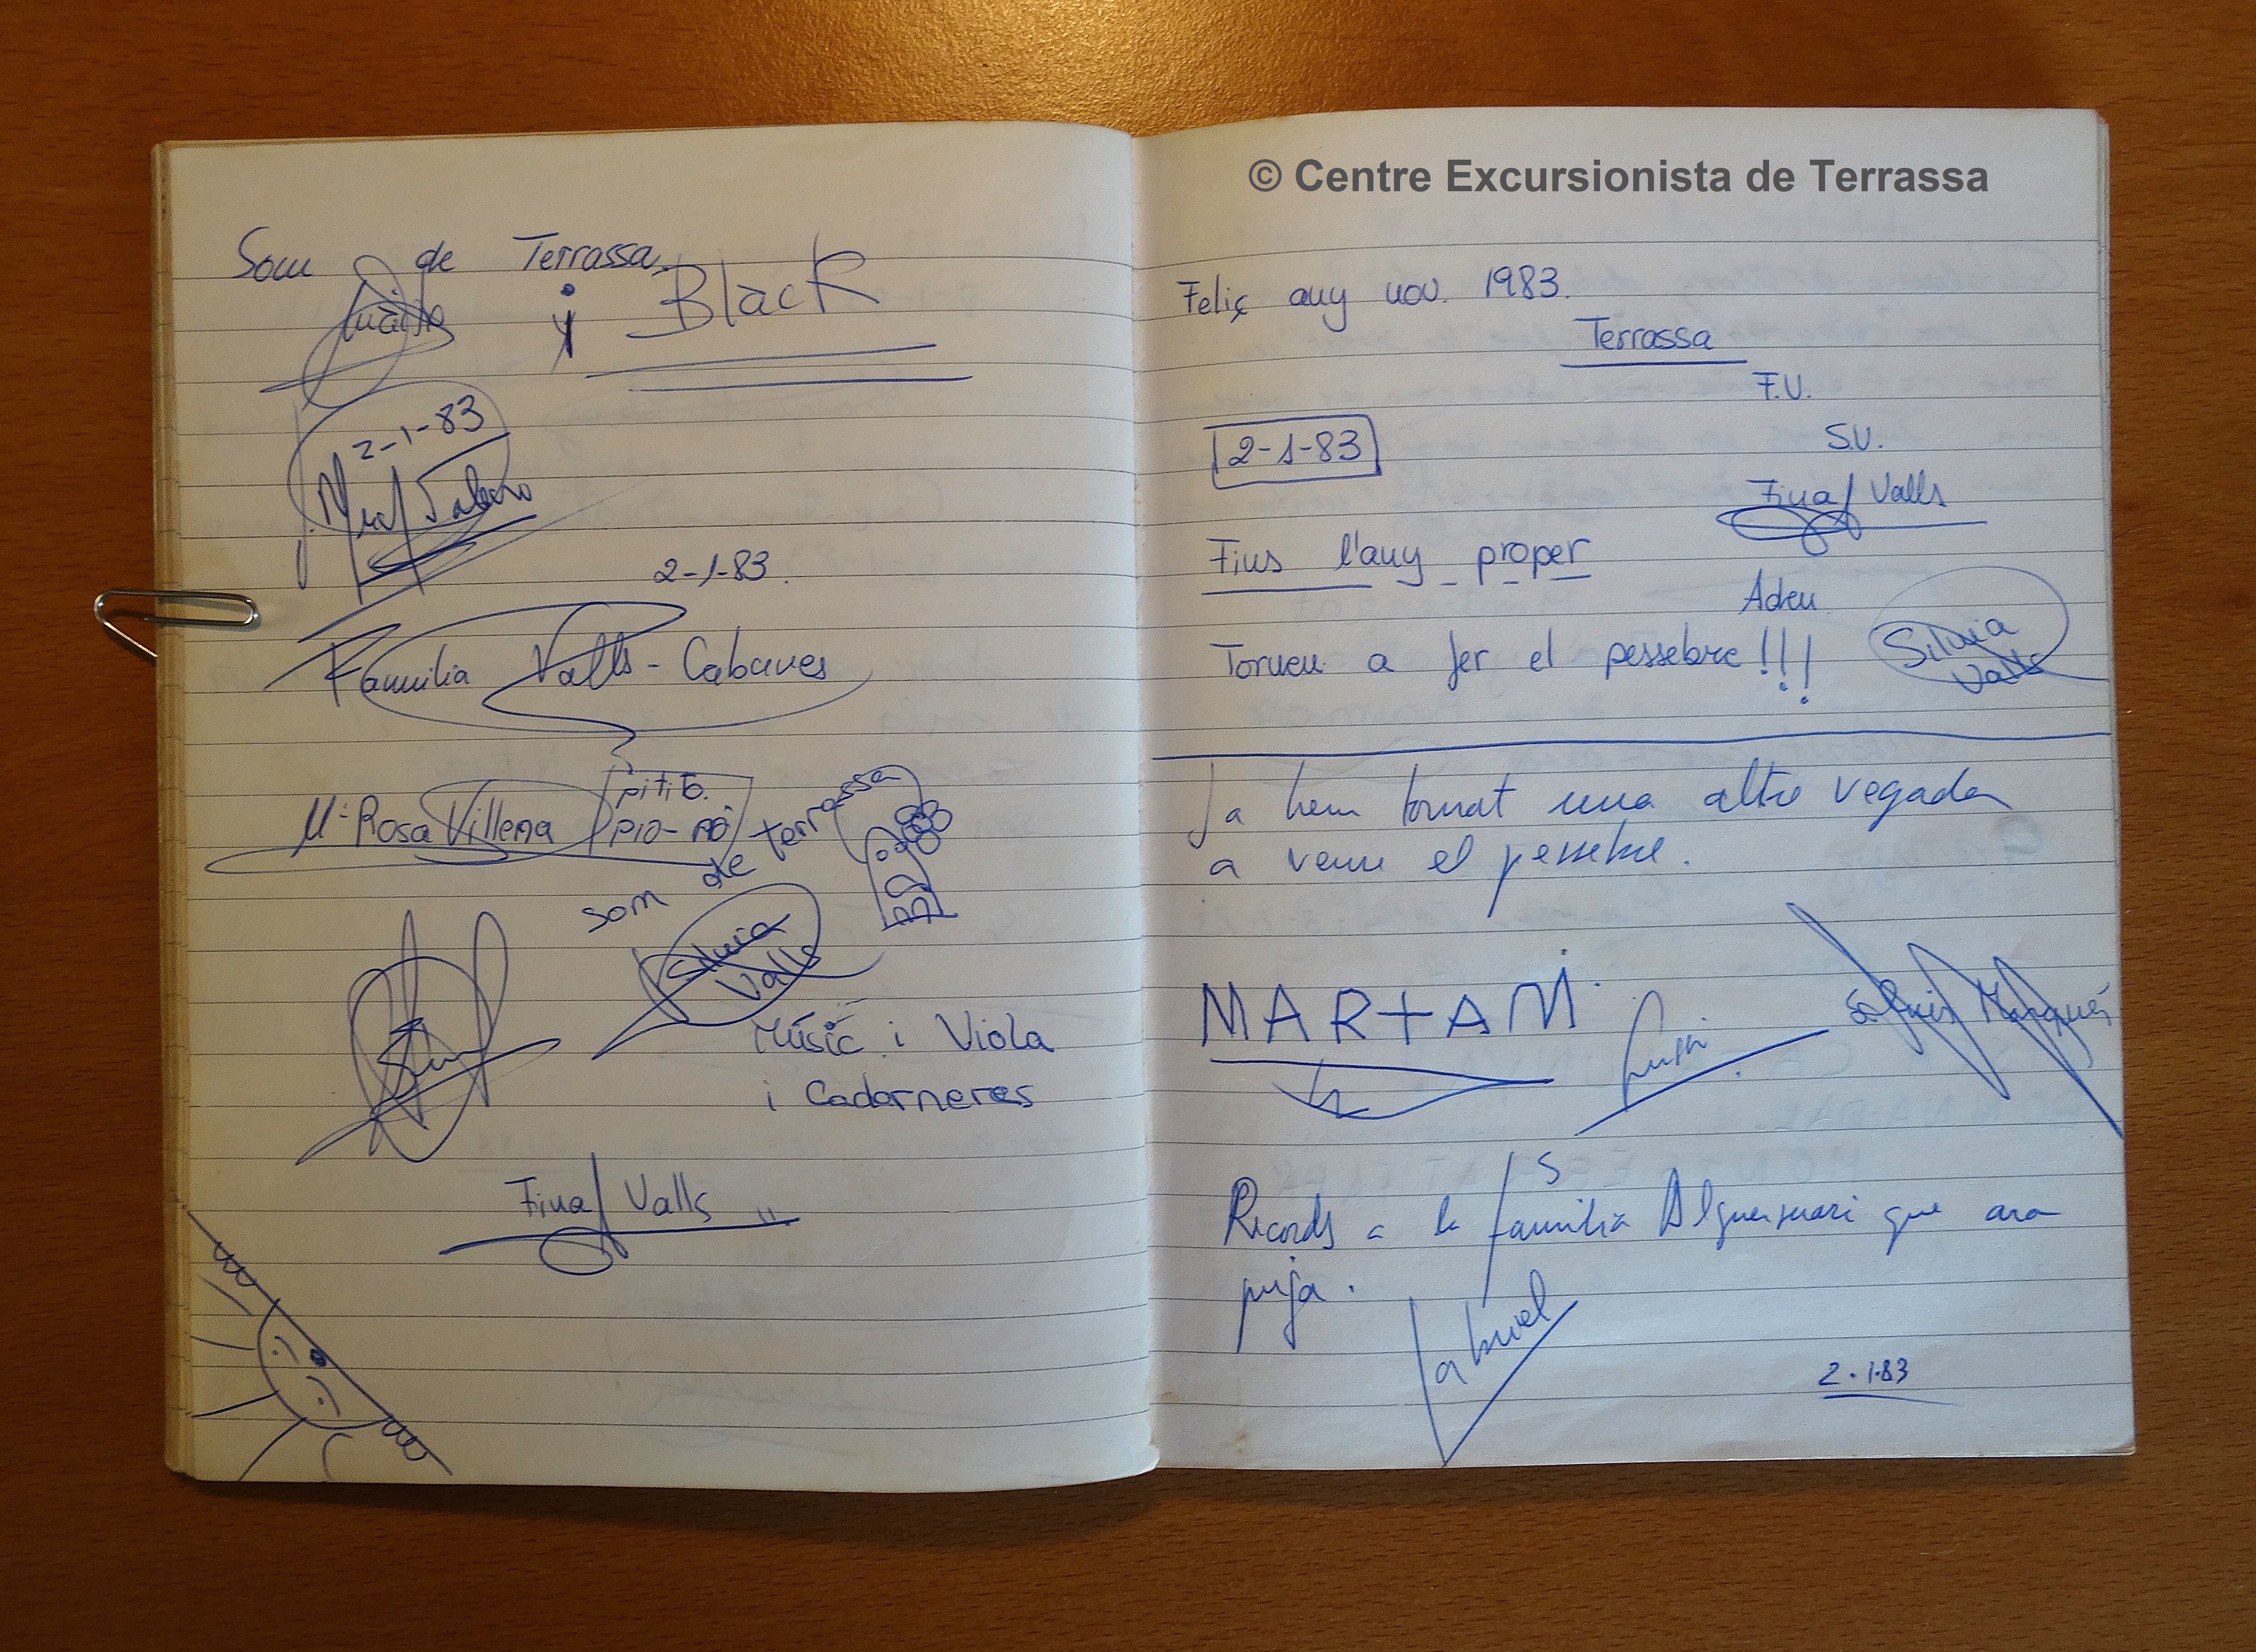 Som de Terrassa
i Black
2-1-83
2-1-83.
Familia Valls - Cabanes
Mª Rosa Villena
pitito.
pio-pio
som de terrassa
Silvia
Valls
Músic i Viola
i Cadarneres
Fina Valls
© Centre Excursionista de Terrassa
Feliç any nou. 1983.
Terrassa
F.V.
S.V.
2-1-83
Fina Valls
Fins l'any proper
Adeu
Torneu a fer el pessebre!!!
Silvia
Valls
Ja hem tornat una altre vegada
a veure el pessebre.
MARTA M
Records a la familia Alguersuari que ara
puja.
2.1.83